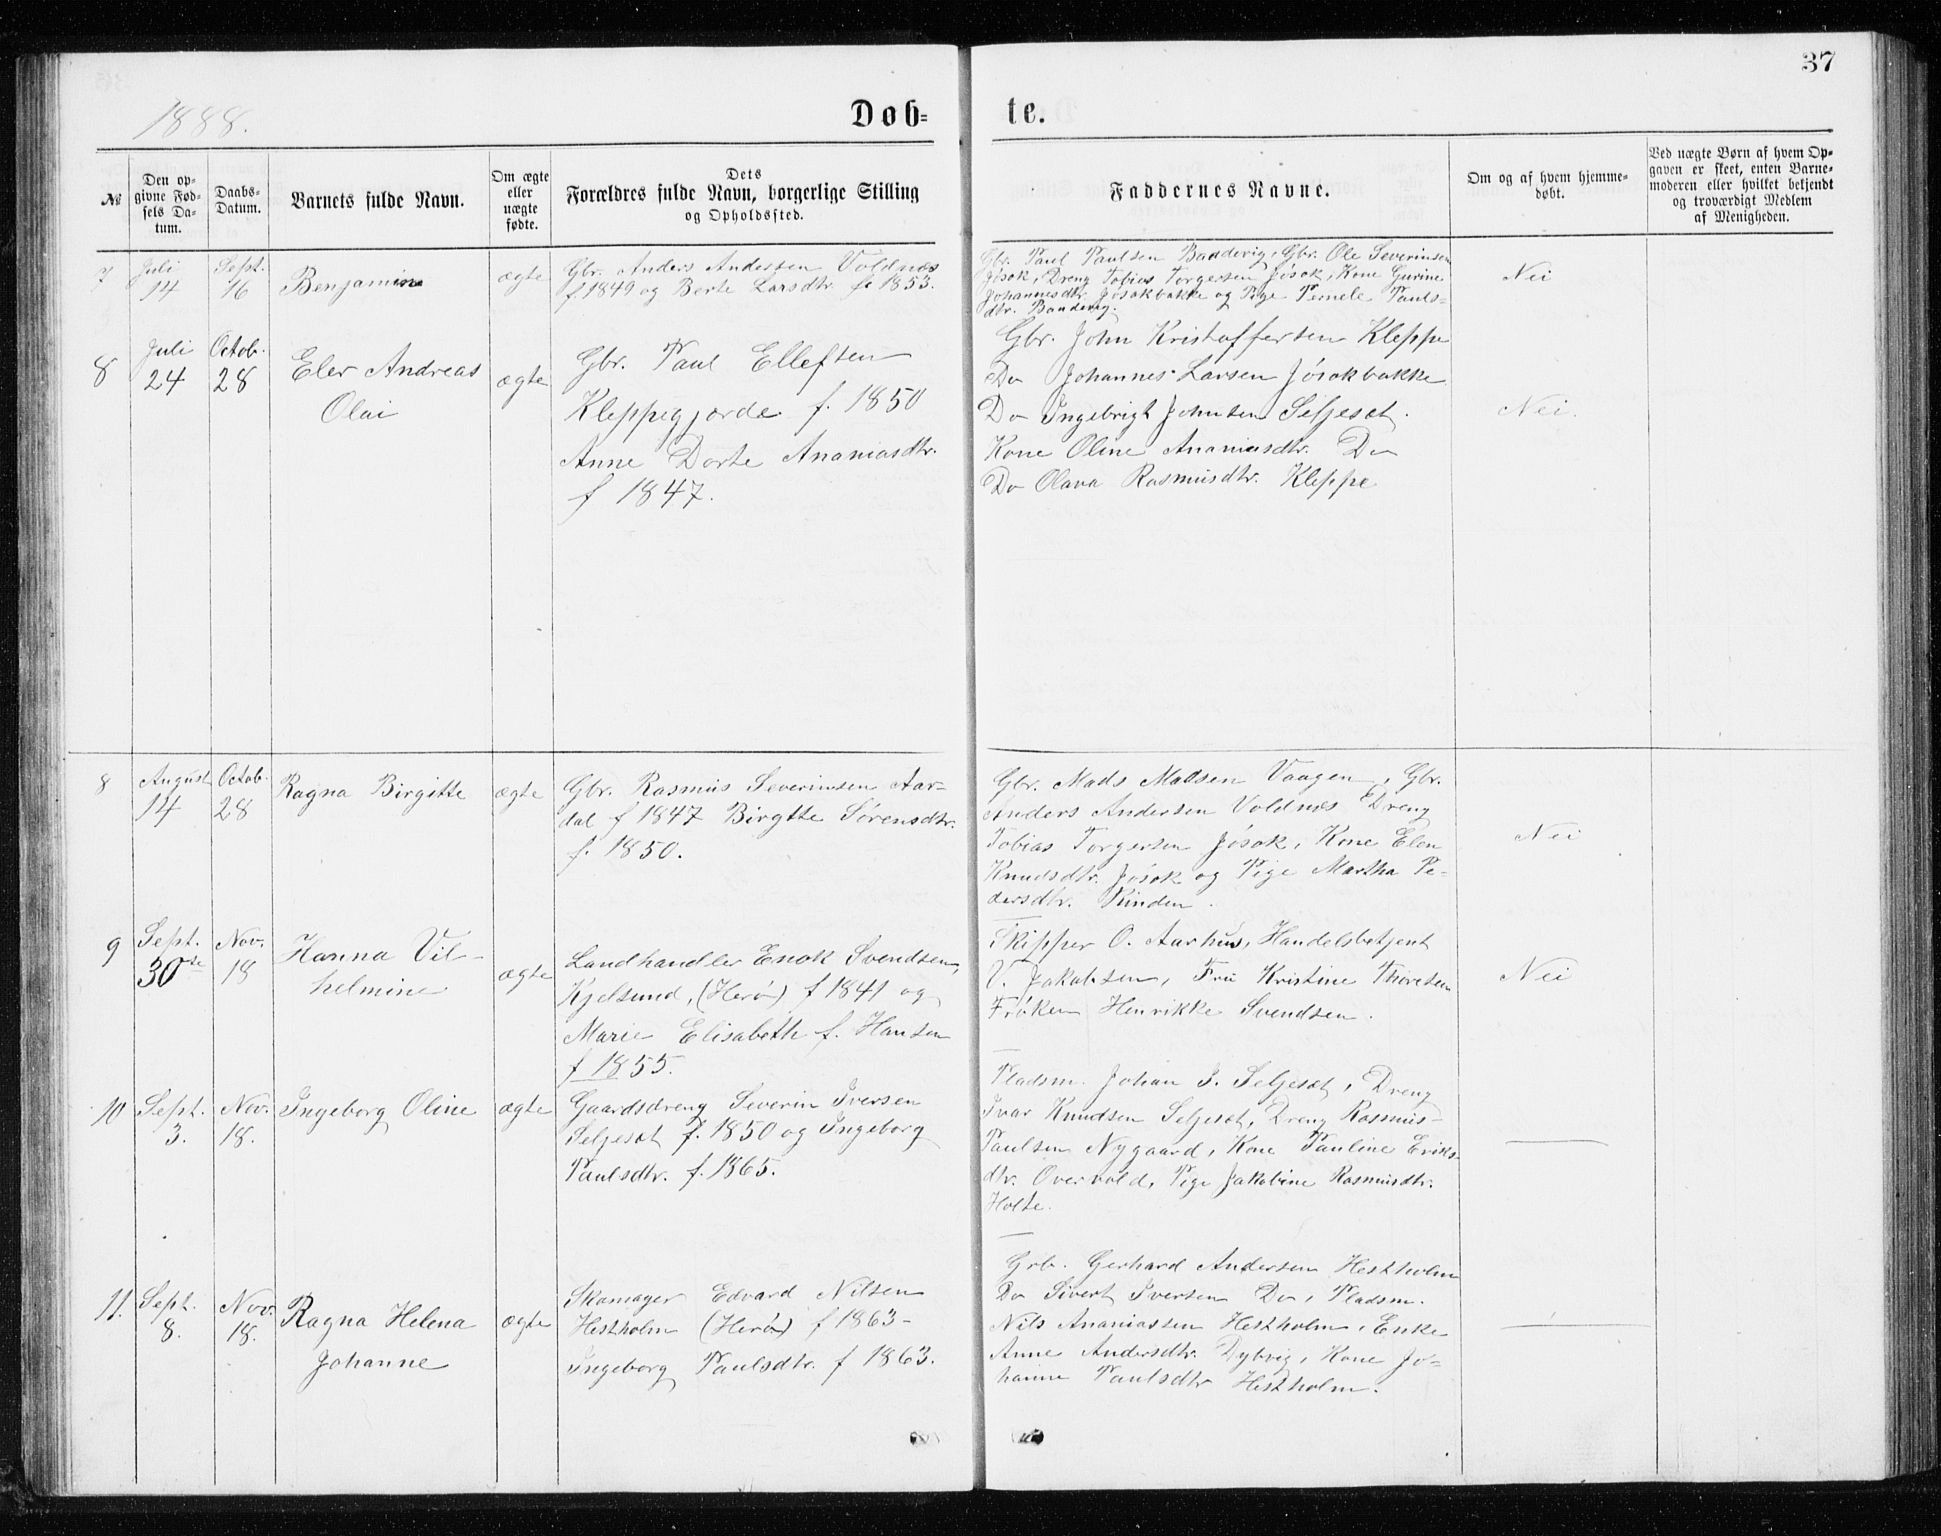 37
1888.
Døb=
te.
№
Den op=
givne Fød=
sels Da=
tum.
Daabs=
Datum.
Barnets fulde Navn.
Om ægte
eller
uægte
fødte.
Dets
Forældres fulde Navn, borgerlige Stilling
og Opholdssted.
Faddernes Navne.
Om og af hvem hjemme=
døbt.
Ved uægte Børn af hvem Op=
gaven er skeet, enten Barne=
moderen eller hvilket bekjendt
og troværdigt Medlem
af Menigheden.
7
Juli
14
Sept.
16
Benjamin
ægte
Gbr. Anders Andersen Voldnæs
f. 1849 og Berte Larsdtr. f. 1853.
Gbr. Paul Paulsen Baadevig, Gbr. Ole Severinsen
Jøsok, Dreng Tobias Torgersen Jøsok, Kone Gurine
Johannesdtr. Jøsokbakke og Pige Pernele Pauls-
dtr. Baadevig.
Nei
8
Juli
24
Octob.
28
Eler Andreas
Olai
ægte
Gbr. Paul Ellefsen
Kleppegjærde f. 1850
Anne Dorte Ananiasdtr.
f 1847.
Gbr. John Kristoffersen Kleppe
Do Johannes Larsen Jøsokbakke
Do Ingebrigt Johnsen Seljesæt.
Kone Oline Ananiasdtr. Do
Do Olava Rasmusdtr. Kleppe
Nei.
8
August
14
Octob.
28
Ragna Birgitte
ægte
Gbr. Rasmus Severinsen Aar-
dal f 1847 Birgtte Sørensdtr.
f. 1850.
Gbr. Mads Madsen Vaagen, Gbr.
Anders Andersen Voldnæs Dreng
Tobias Torgersen Jøsok, Kone Elen
Knudsdtr. Jøsok og Pige Martha Pe-
dersdtr. Rinden.
Nei
9
Sept.
30te
Nov.
18
Hanna Vil-
helmine
ægte
Landhandler Enok Svendsen,
Kjelsund, (Herø) f 1841 og
Marie Elisabeth f. Hansen
f 1855.
Skipper O. Aarhus, Handelsbetjent
V. Jakobsen, Fru Kristine Thoresen
Frøken Henrikke Svendsen.
Nei
10
Sept.
3.
Nov.
18.
Ingeborg Oline
ægte
Gaardsdreng Severin Iversen
Seljesæt f. 1850 og Ingeborg
Paulsdtr. f. 1865.
Pladsm. Johan I. Seljesæt, Dreng
Ivar Knudsen Seljesæt, Dreng Rasmus
Paulsen Nygaard, Kone Pauline Eriks-
dtr. Overvold, Pige Jakobine Rasmusdtr.
Holte.
11.
Sept.
8.
Nov.
18.
Ragna Helena
Johanne
ægte
Skomager Edvard Nilsen
Hestholm (Herø) f 1863-
Ingeborg Paulsdtr. f 1863.
Grb. Gerhard Andersen Hestholm
Do Sivert Iversen Do, Pladsm.
Nils Ananiassen Hestholm, Enke
Anne Andersdtr. Dybvig, Kone Jo-
hanne Paulsdtr Hestholm.